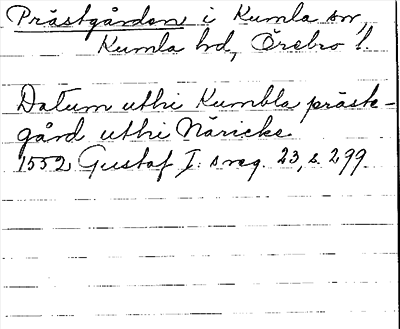 Prästgården i Kumla sn,
Kumla hd, Örebro l.
Datum uthi Kumbla präste-
gård uthi Näricke
1552, Gustaf I:s reg. 23, s. 299.